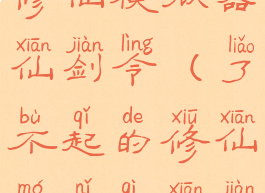 修仙模拟器
xiān jiàn lìng liǎo
仙剑令（了
bù qǐ de xiū xiān
不起的修仙
mó nǐ qì xiān jiàn